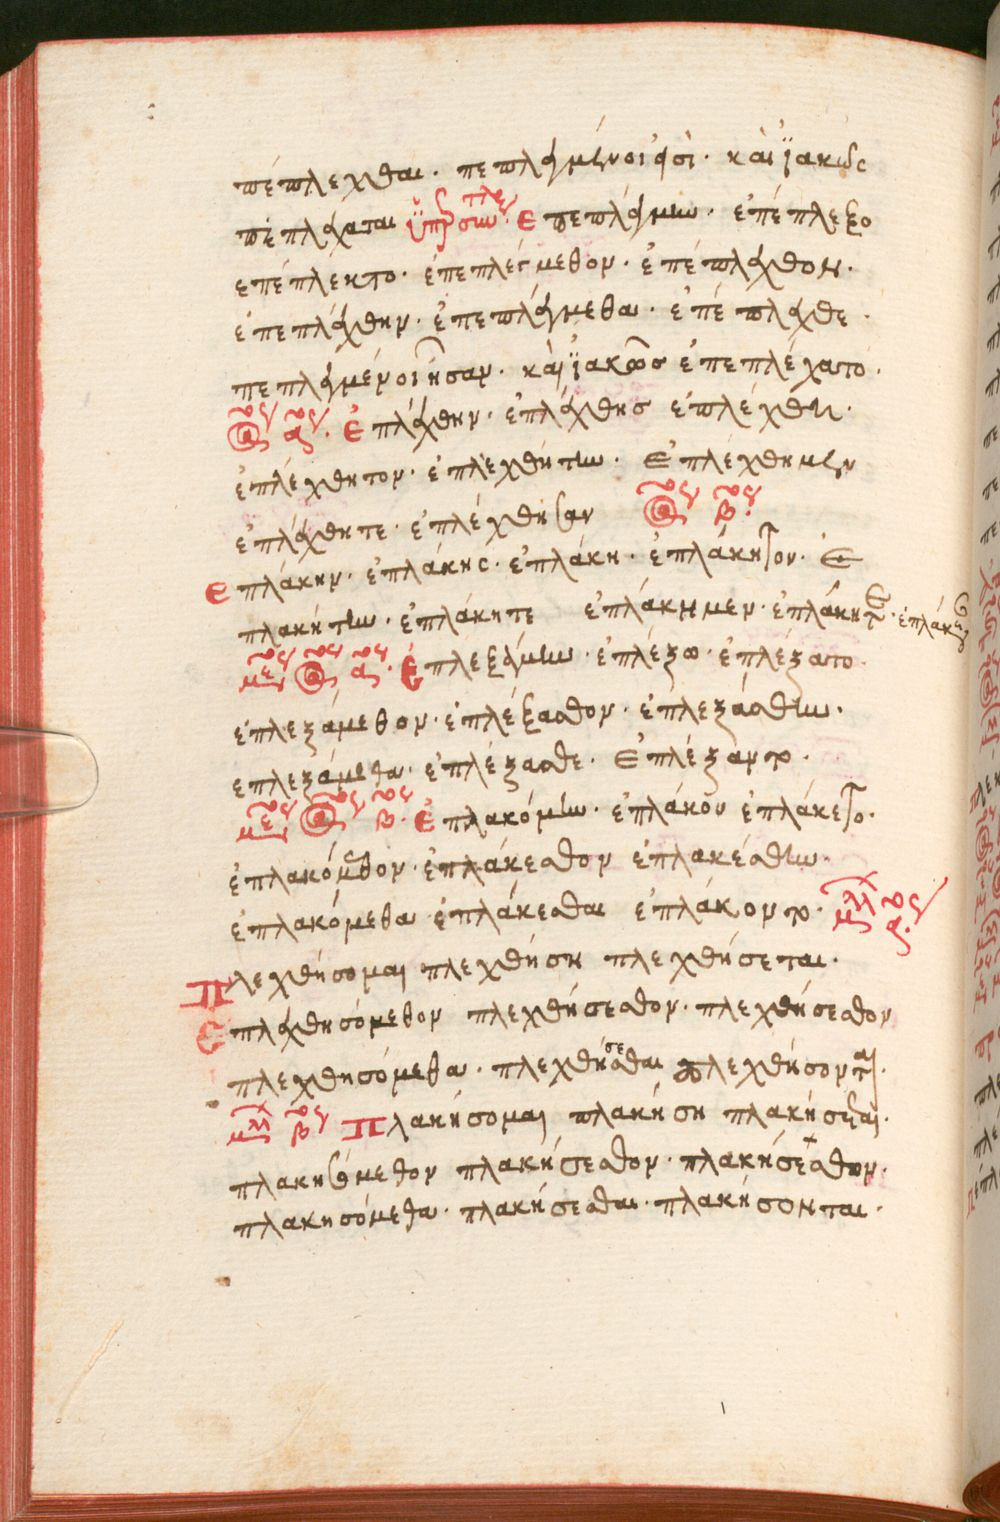 πέπλεχθαι. πεπλεγμένοι εἰσὶ. καὶ ἰακῶς
πεπλέχαται ὑπερσυντελι Ἐπεπλέγμην. ἐπέπλεξο
επέπλεκτο. ἐπεπλέγμεθον. ἐπέπλεχθον.
ἐπεπλέχθην. ἐπεπλέγμεθα. ἐπέπλεχθε.
πεπλεγμένοι ἦσαν. καὶ ἰακῶς ἐπεπλέχατο.
Ἐπλέχθην. ἐπλέχθης ἐπλέχθη.
ἐπλέχθητον. ἐπλεχθήτην. Ἐπλέχθημεν
ἐπλέχθητε. ἐπλέχθησαν
Επλάκην. ἐπλάκης. ἐπλάκη. ἐπλάκητον. Ἐ
πλακήτην. ἐπλάκητε ἐπλάκημεν. ἐπλάκητε. ἐπλάκησ
Ἐπλεξάμην. ἐπλέξω. ἐπλέξατο.
ἐπλεξάμεθον. ἐπλέξασθον. ἐπλεξάσθην.
επλεξάμεθα. ἐπλέξασθε. Ἐπλέξαντο.
β. Ἐπλακόμην. ἐπλάκου ἐπλάκετο.
ἐπλακόμεθον. ἐπλάκεσθον ἐπλακέσθην.
ἐπλακόμεθα ἐπλάκεσθαι ἐπλάκοντο. α.
Πλεχθήσομαι πλεχθήσῃ πλεχθήσεται.
πλεχθησόμεθον πλεχθήσεσθον. πλεχθήσεσθον
πλεχθησόμεθα. πλεχθήσεσθαι πλεχθήσονται.
β Πλακήσομαι πλακήσῃ πλακήσεται.
πλακησόμεθον πλακήσεσθον. πλακήσεσθον.
πλακησόμεθα. πλακήσεσθαι. πλακήσονται.